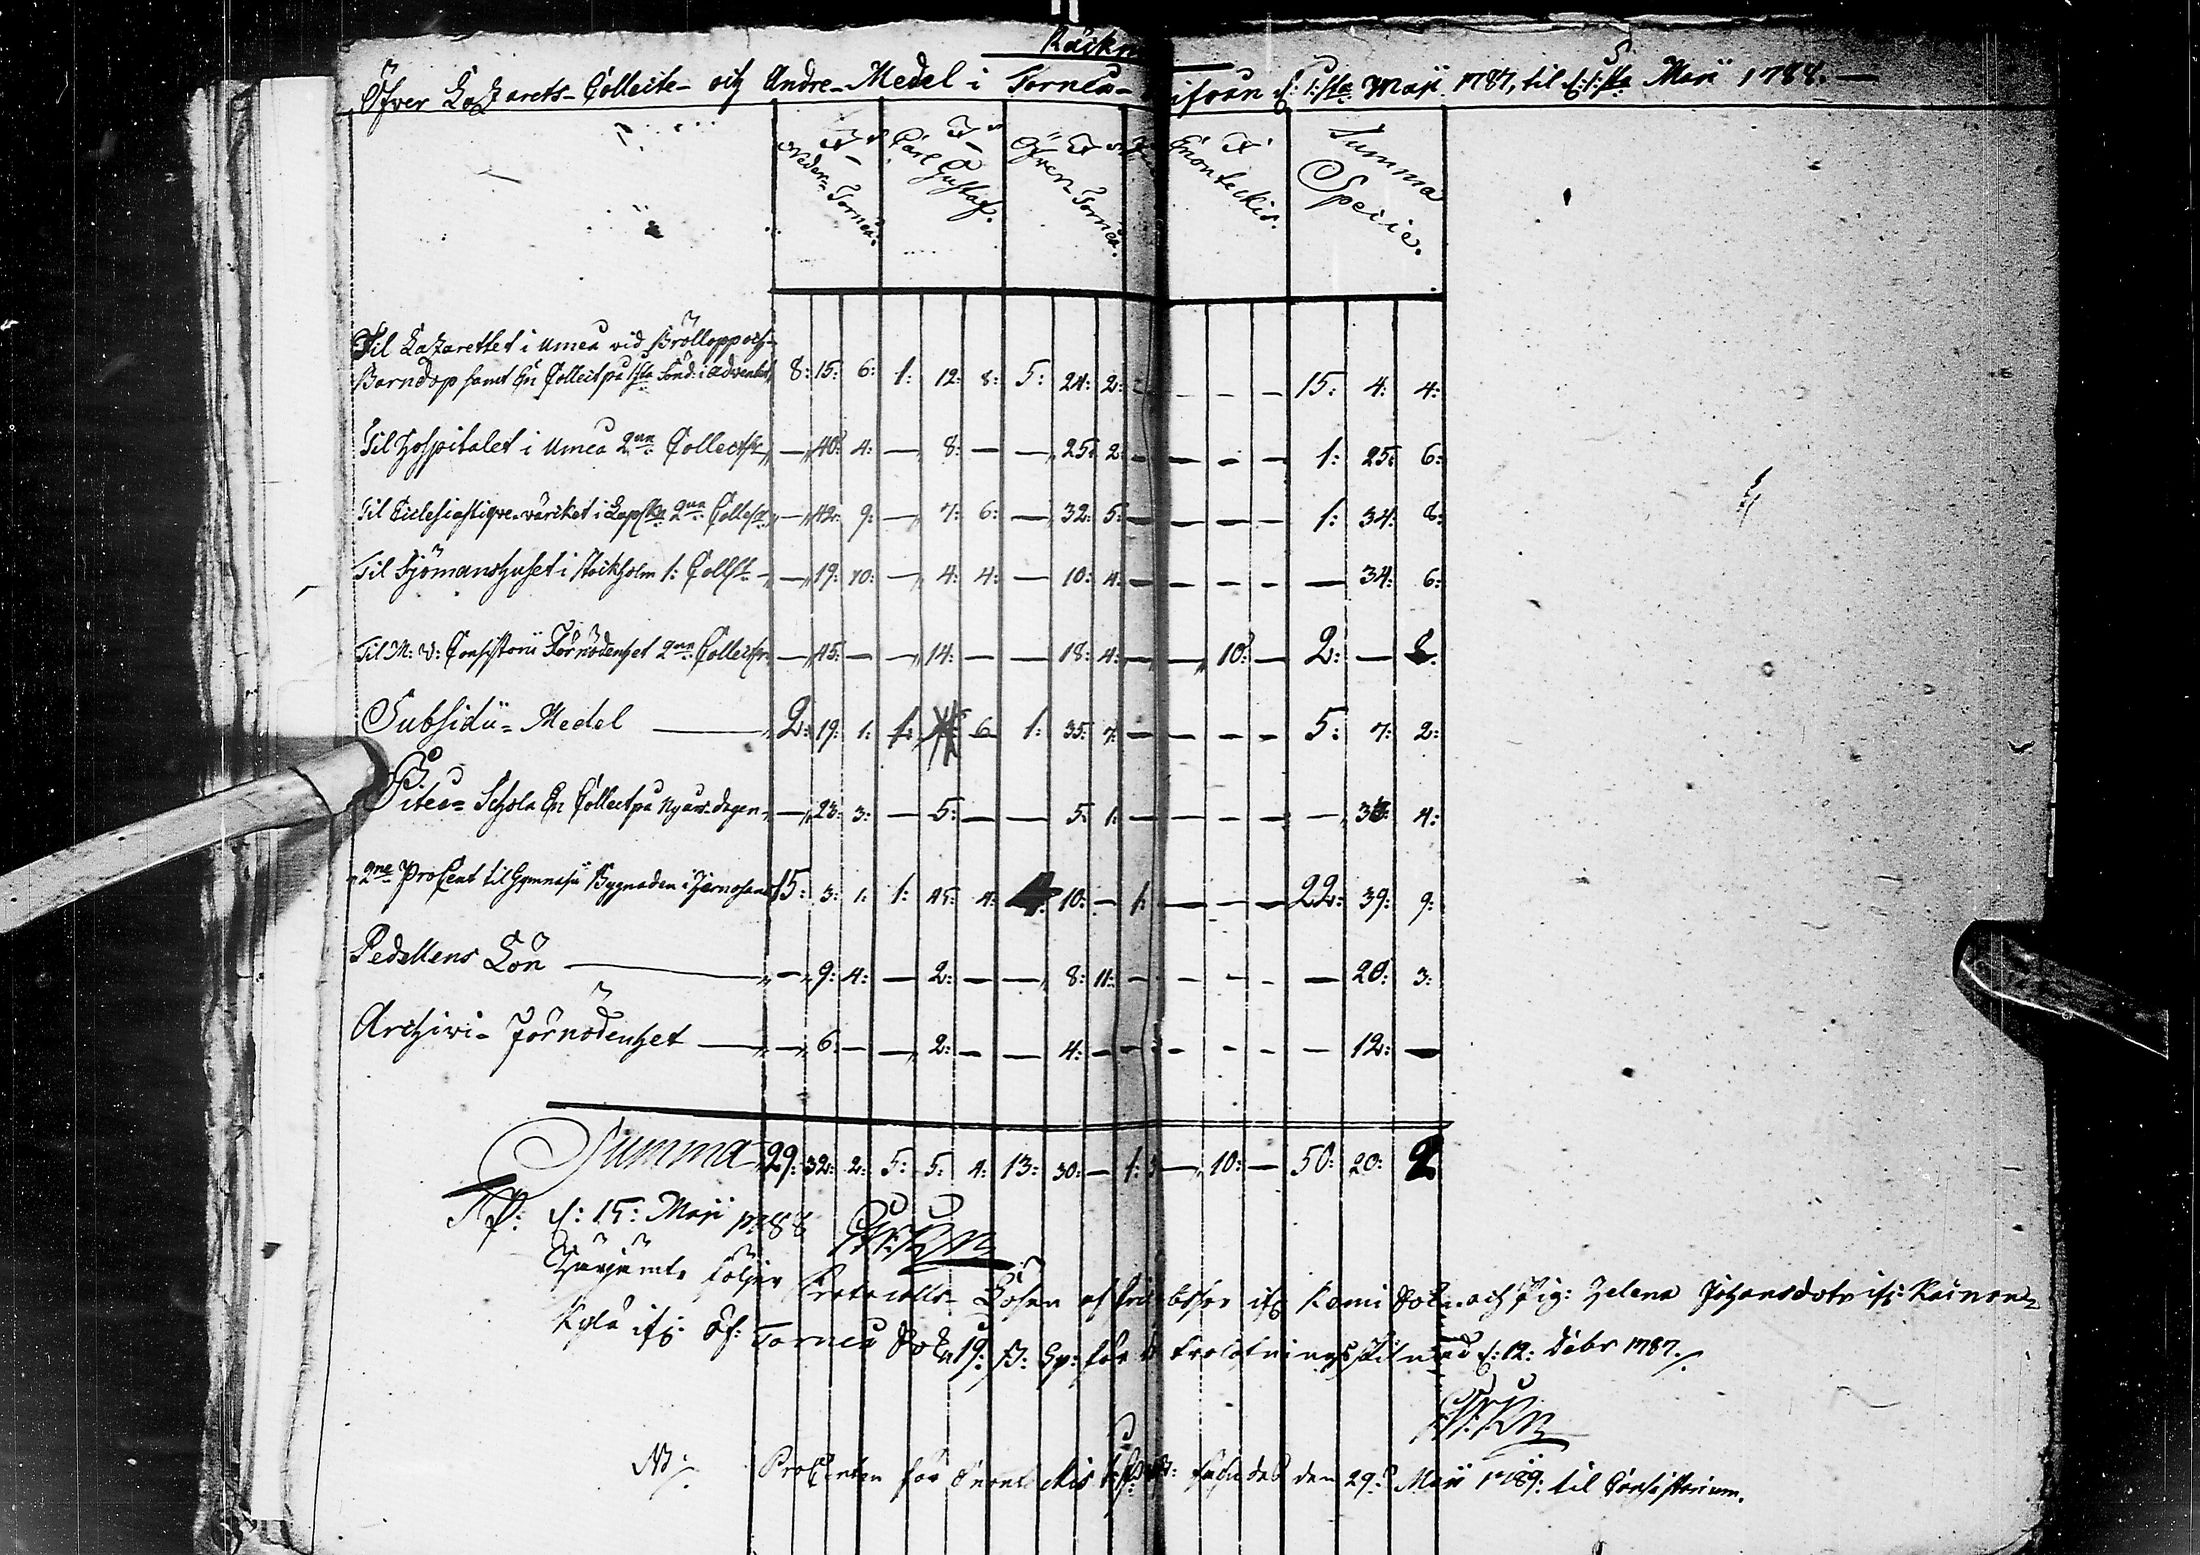 Räkn
Öfver Lazarets- Collecte- och Andre- Medel i Torneå- ifrån d: 1:sta Maji 1787, til d: 1:sta Maji 1788. —
Neder= Torneå. Carl Gustaf. Öfver= Torneå. Enonteckis. Summa Specie.
Til Lazarettet i Umeå vid Brölloppoch
Barndop samt En Collect på 1sta Sönd: i Advendet 8: 15: 6: 1: 12: 8: 5: 24: 2: — — — 15: 4: 4:
Til Hospitalet i Umeå 2ne Collecter — 40: 4: — 8: — — 25: 2: — — — — 1: 25: 6:
Til Ecclesiastique-värcket i Lapska 2ne Collect — 42: 9: — 7: 6: — 32: 5: — — — — 1: 34: 8:
Til Sjömanshuset i Stockholm 1: Collect — — 19: 10: — 4: 4: — 10: 4: — — — — — 34: 6:
Til M: V: Consistorii Förnödenhet 2ne Collecter — 45: — — 14: — — 18: 4: — — 10: — 2: — 8:
Subsidii= Medel — 2: 19: 1: 1: 6 1: 35: 7: — — — — 5: 7: 2:
Piteå= Schola En Collect på Nyårs-dagen — 23: 3: — 5: — — 5: 1: — — — — — 33: 4:
2ne ProCent til Gymnasii Bygnaden i Hernösand 15: 3: 1: 1: 45: 4: 10: — 1: — — — 22: 39: 9:
Pedellens Lön — — 9: 4: — 2: — — 8: 11: — — — — — 20: 3:
Archivi- Förnödenhet — — 6: — — 2: — — 4: — — — — — — 12: —
Summa 29: 32: 2: 5: 5: 4: 13: 30: — 1: — 10: — 50: 20: 2
d: 15: Maji 1788
Härjämte följer Protocolls- Lösen af ifr. Kemi Sokn och Pig: Helena Johansdotr ifr: Kainun=
Kylä ifr: Öf: Torneå Sokn 19: ß: Sp: för Trolofnings Skilnad d: 12: Decbr 1787./.
NB: ProCenten för Enonteckis den 29: Maji 1789: til Consistorium.